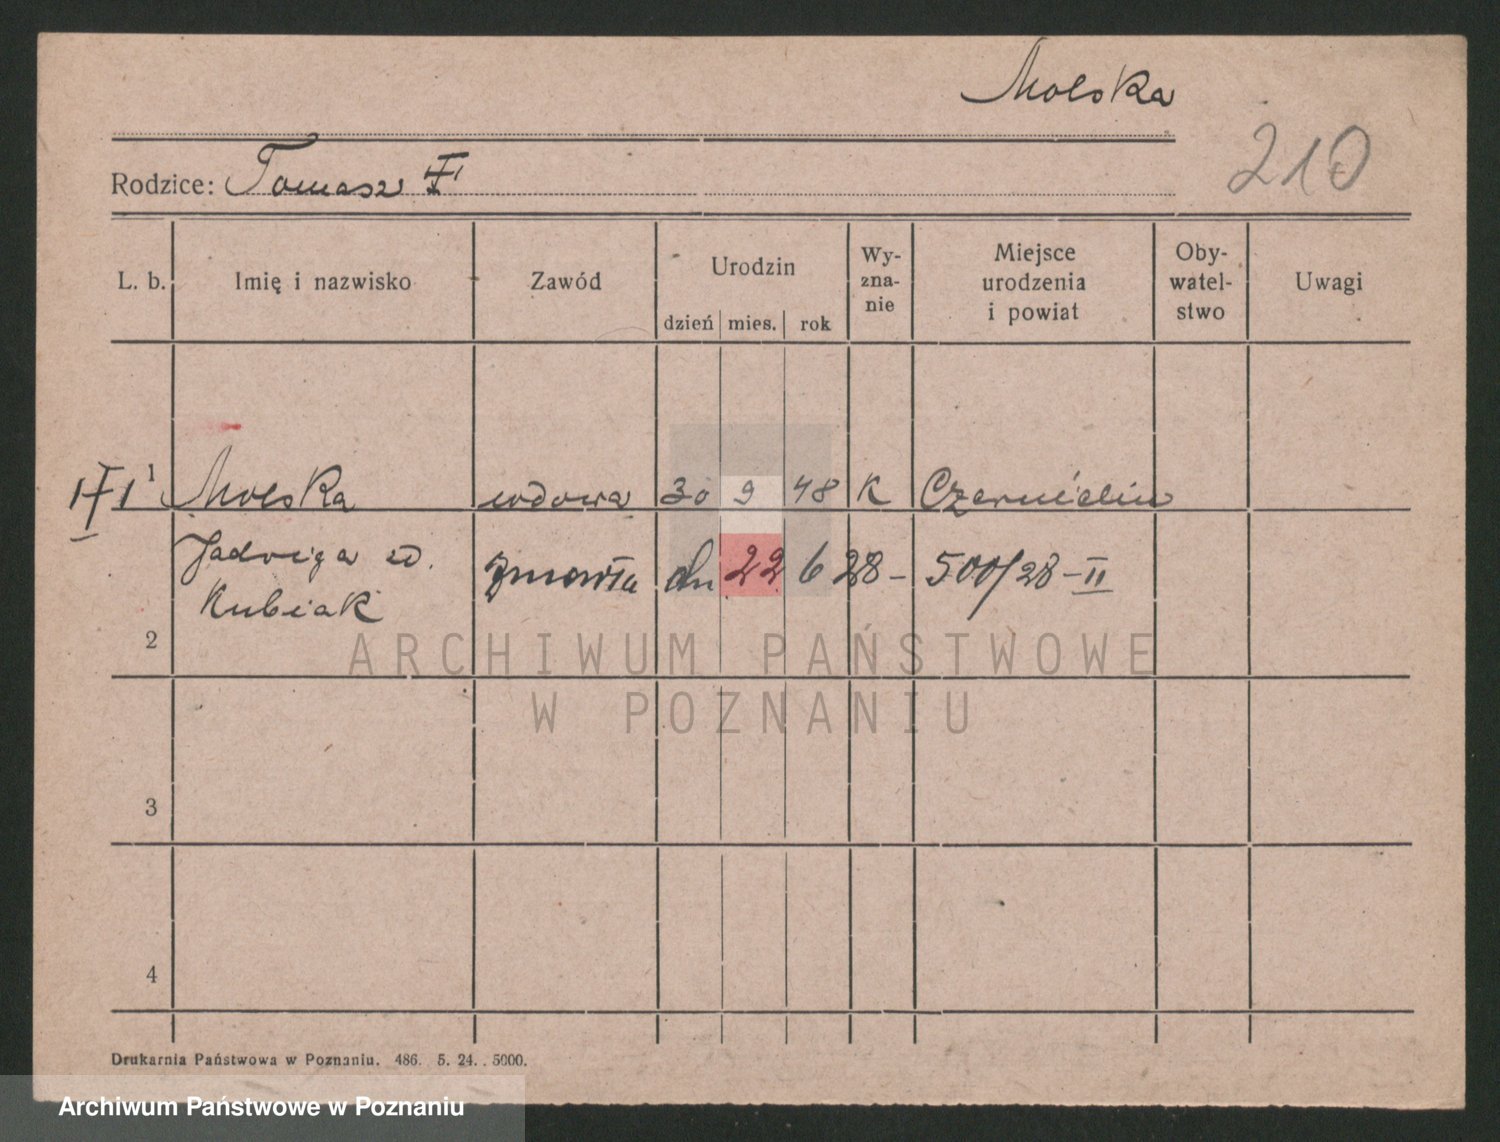 Molska
210
Rodzice: Tomasz
L. b. Imię i nazwisko Zawód Urodzin Wy- Miejsce Oby- Uwagi
zna- urodzenia watel-
nie i powiat stwo
dzień mies. rok
1 Molska wdowa 30 9 48 K
Jadwiga zd. zmarła dn 22 6 28 - 500/28 - II
Kubiak
2
3
4
ARCHIWUM PAŃSTWOWE
W POZNANIU
Drukarnia Państwowa w Poznaniu. 486. 5. 24. . 5000.
Archiwum Państwowe w Poznaniu